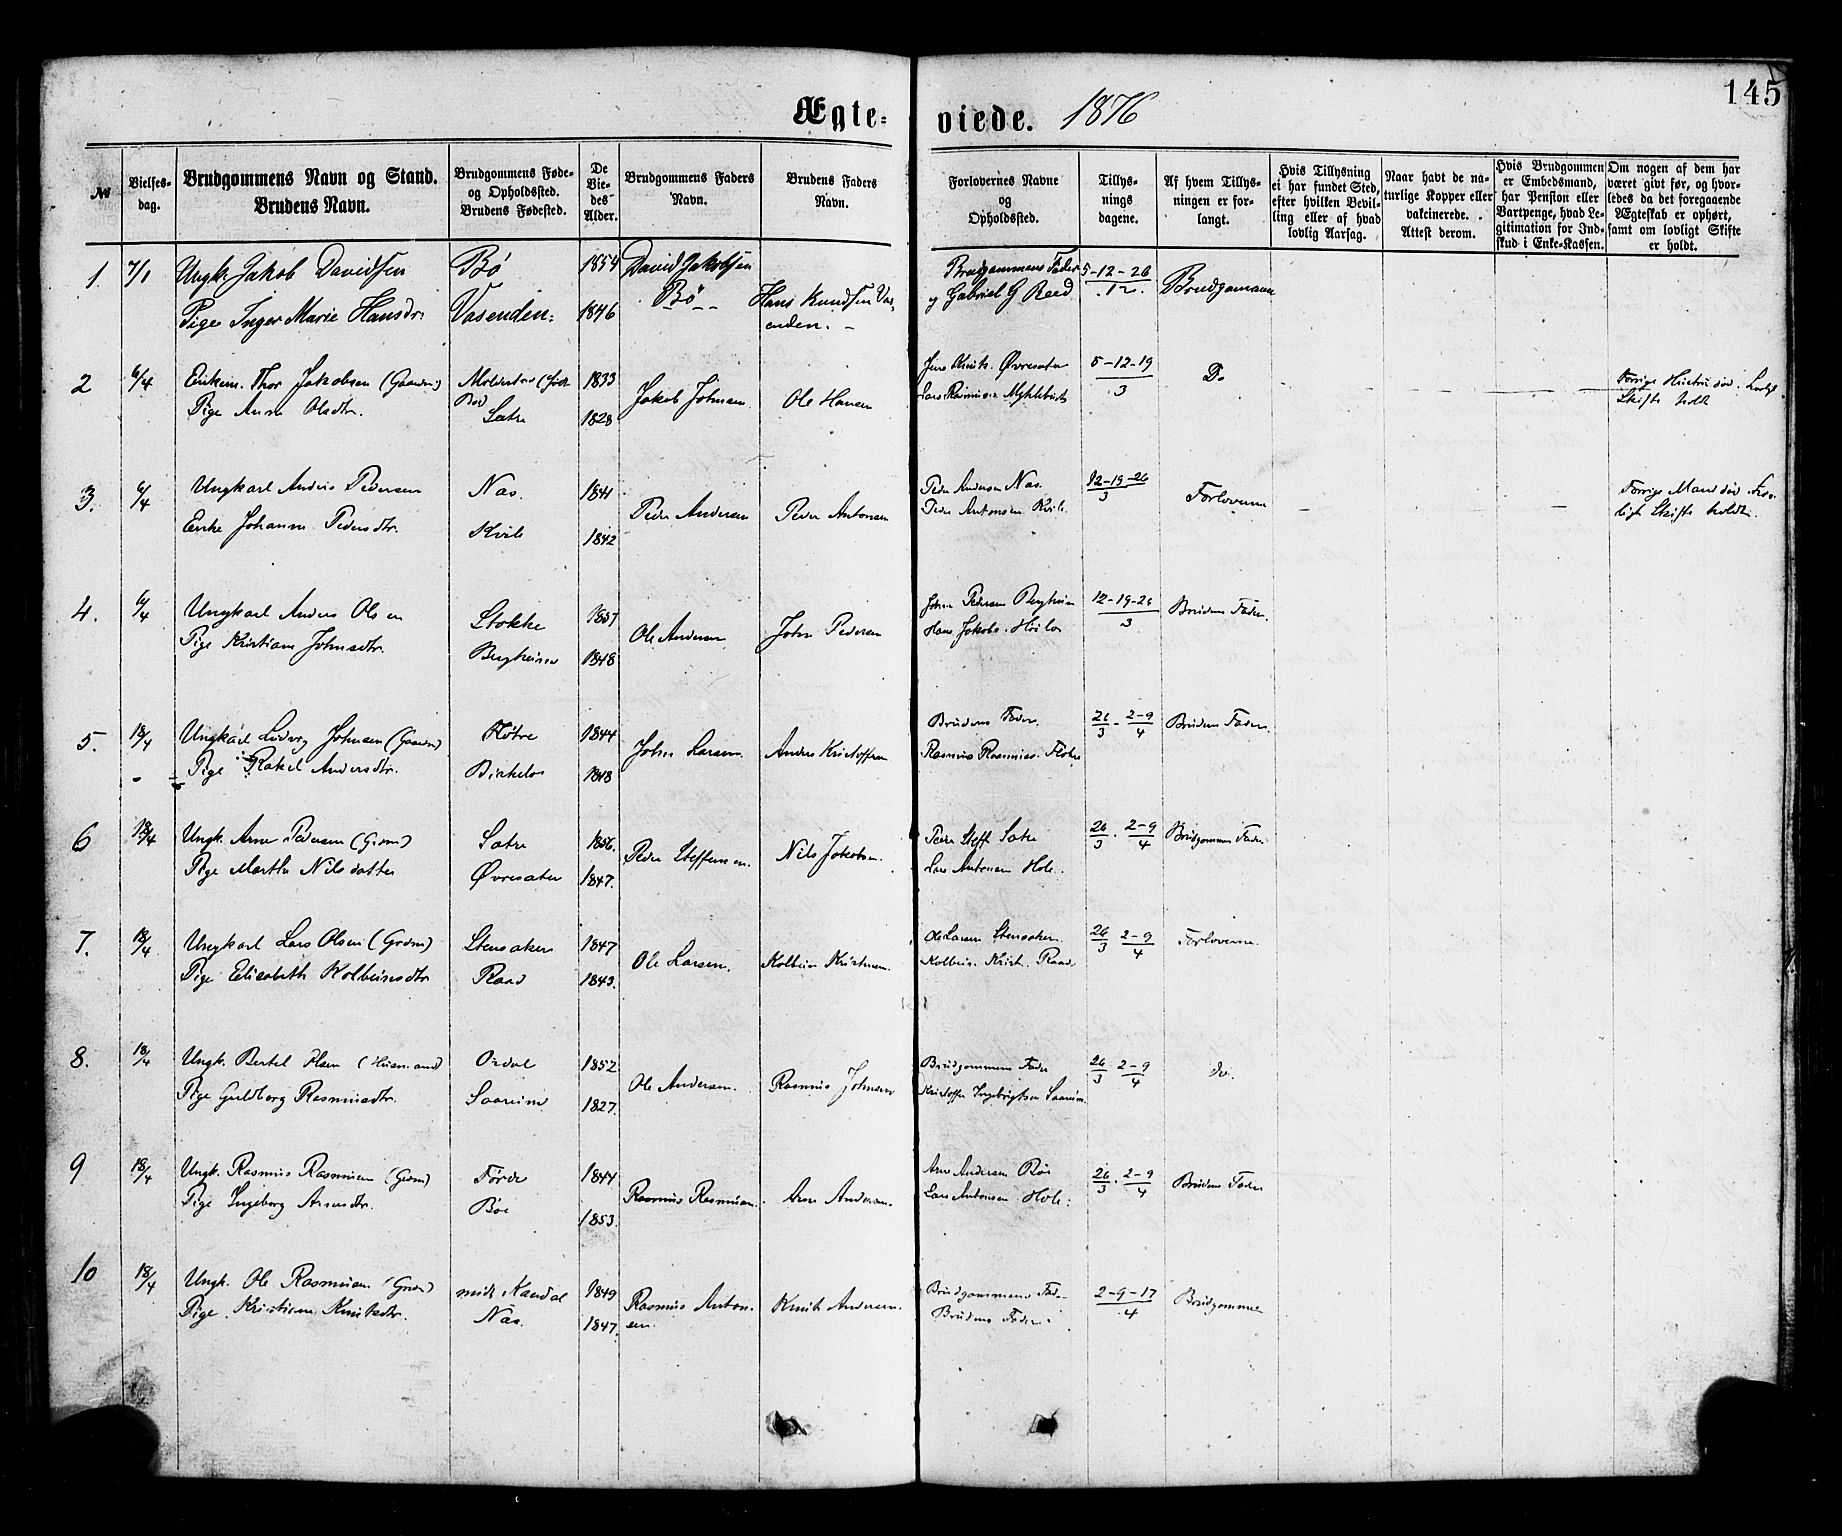 145
Ægte- viede. 1876
№
Vielses-
dag.
Brudgommens Navn og Stand.
Brudens Navn.
Brudgommens Føde-
og Opholdssted.
Brudens Fødested.
De
Vie-
des
Alder.
Brudgommens Faders
Navn.
Brudens Faders
Navn.
Forlovernes Navne
og
Opholdssted.
Tillys-
nings
dagene.
Af hvem Tillys-
ningen er for-
langt.
Hvis Tillysning
ei har fundet Sted,
efter hvilken Bevil-
ling eller af hvad
lovlig Aarsag.
Naar havt de na-
turlige Kopper eller
vakcinerede.
Attest derom.
Hvis Brudgommen
er Embedsmand,
har Pension eller
Vartpenge, hvad Le-
gitimation for Ind-
skud i Enke-Kassen.
Om nogen af dem har
været givt før, og hvor-
ledes da det foregaaende
Ægteskab er ophørt,
samt om lovligt Skifte
er holdt.
1 7/1 Ungk. Jakob Davidsen Bø 1854 David Jakobsen Brudgommens Fader 5-12-26 Brudgommen
Bø Hans Knudsen Vas- og Gabriel G Reed 12.
Pige Inger Marie Hansdr. Vasenden 1846 enden.
2 6/4 Enkem. Thor Jakobsen (Gaardm) 1833 Jakob Johnsen Ole Hansen Øvresæter 5-12-19 Do Forrige Hustru død. Lovlgt
Pige Anne Olsdtr. Sætre 1828 Lars Rasmusen Myklebust 3 Skifte holdt
3. 6/4 Ungkarl Anders Pedersen Nes. 1841 Peder Andersen Peder Antonsen Peder Andersen Nes. 12-19-26 Forloverne Forrige Mand død.
Enke Johanne Pedersdtr. Kvile 1842 Peder Antonsen Kvile. 3 ligt Skifte holdt.
4. 6/4 Ungkarl Anders Olsen Stokke Ole Andersen John Pedersen John Pedersen Bergheim 12-19-26 Brudens Fader.
Pige Kristiane Johnsdtr. Bergheim 1848 Hans Jakobs. 3
5. 18/4 Ungkarl Ludvig Johnsen (Gaardm) Fløtre 1844 John Larsen Anders Kristoffersen Brudens Fader. 26/3 - 2-9/4 Brudens Fader.
Pige Rakel Andersdtr. Birkelo 1848 Rasmus Rasmusen Fløtre
6 18/4 Ungk. Arne Pedersen (Grdm) Sætre 1856. Peder Steffensen Nils Jakobsen. Peder Steff. Sætre 26/3 - 2-9/4 Brudgommens Fader.
Pige Marthe Nilsdatter Øvresæter 1847. Lars Antonsen Hole.
7. 18/4 Ungkarl Lars Olsen (Grdm) Stensaker 1847 Ole Larsen. Kolbein Kristensen. Ole Larsen Stensaker. 26/3 2-9/4 Forloverne.
Pige Elisabeth Kolbeinsdtr Raad 1843. Kolbein Krist. Raad
8. 18/4 Ungk. Bertel Olsen (Husmand) 1852 Ole Andersen. Rasmus Johnsen Brudgommens Fader 26/3 2-9/4 do.
Pige Guldborg Rasmusdtr. Saareim 1827. Kristoffer Ingebrigtsen Saareim.
9 18/4 Ungk. Rasmus Rasmusen (Grdm) Førde 1844 Rasmus Rasmusen. Arne Andersen. Arne Andersen Bøe 26/3 - 2-9/4 Brudens Fader
Pige Ingeborg Arnesdtr. Bøe 1853. Lars Antonsen Hole.
10 18/4 Ungk. Ole Rasmusen (Grdm) Kandal 1849 Rasmus Anton- Knut Andersen. Brudgommens Fader 2-9-17 Brudgommen
Pige Kristiane Knutsdtr. Nes. 1847. sen. Brudens Fader. 4